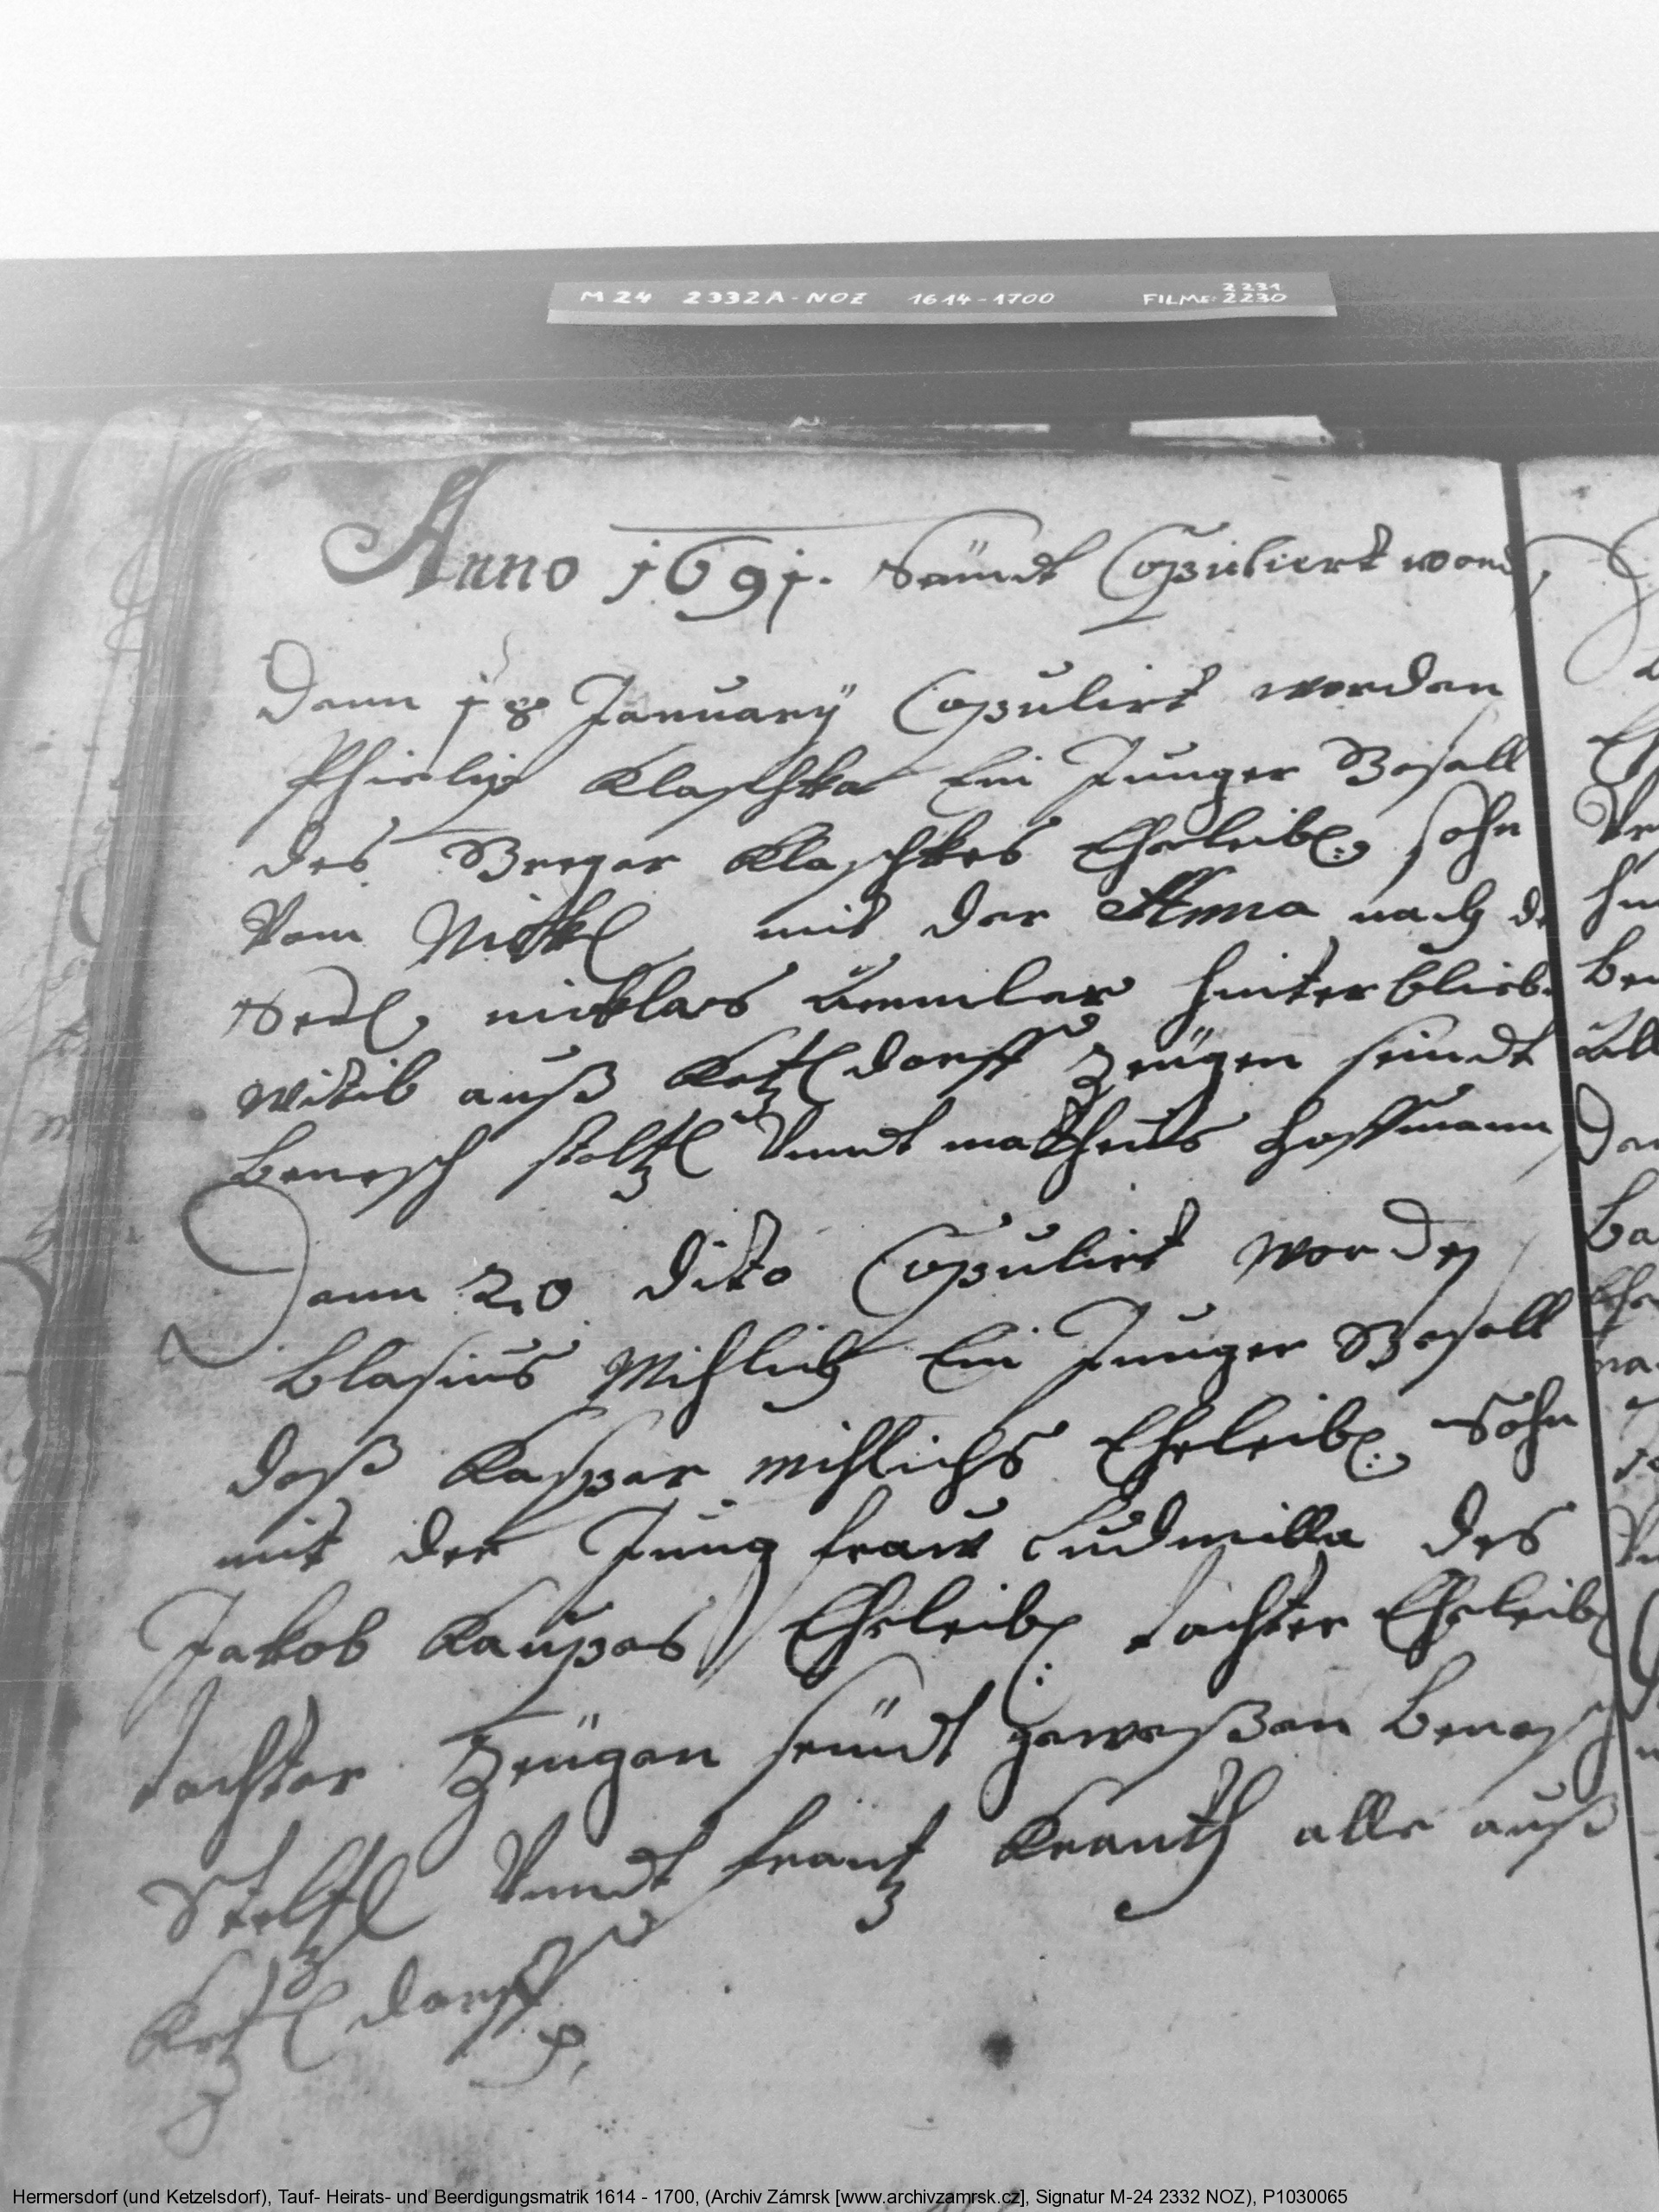 M 24 2332A-NOZ 1614-1700 FILME: 2231
2230
Anno 1691. Seündt Copuliert word
Denn 18 January Copulirt worden
Phielip Klaschka Ein Junger Gesell
des Greger Klaschkes Eheleibl: sohn
Vom Nickl mit der Anna nach de
Seel nicklas Ammler hinterblieb
witib auß Ketzldorff Zeügen seindt
Benesch stoltzl Vundt matheus hoffmann
Denn 20 dito Copulirt worden
Blasius Mihlich Ein Junger Gesell
deß Kasper mihlichs Eheleibl: Sohn
mit der Jung fraw Ludmilla des
Jakob Kaupes Eheleibl: tochter Eheleibl
tochter Zeügen seündt geweßen Benesch
Steltzl Vundt frantz Krauth alle auß
Ketzldorff
Hermersdorf (und Ketzelsdorf), Tauf- Heirats- und Beerdigungsmatrik 1614 - 1700, (Archiv Zámrsk [www.archivzamrsk.cz], Signatur M-24 2332 NOZ), P1030065